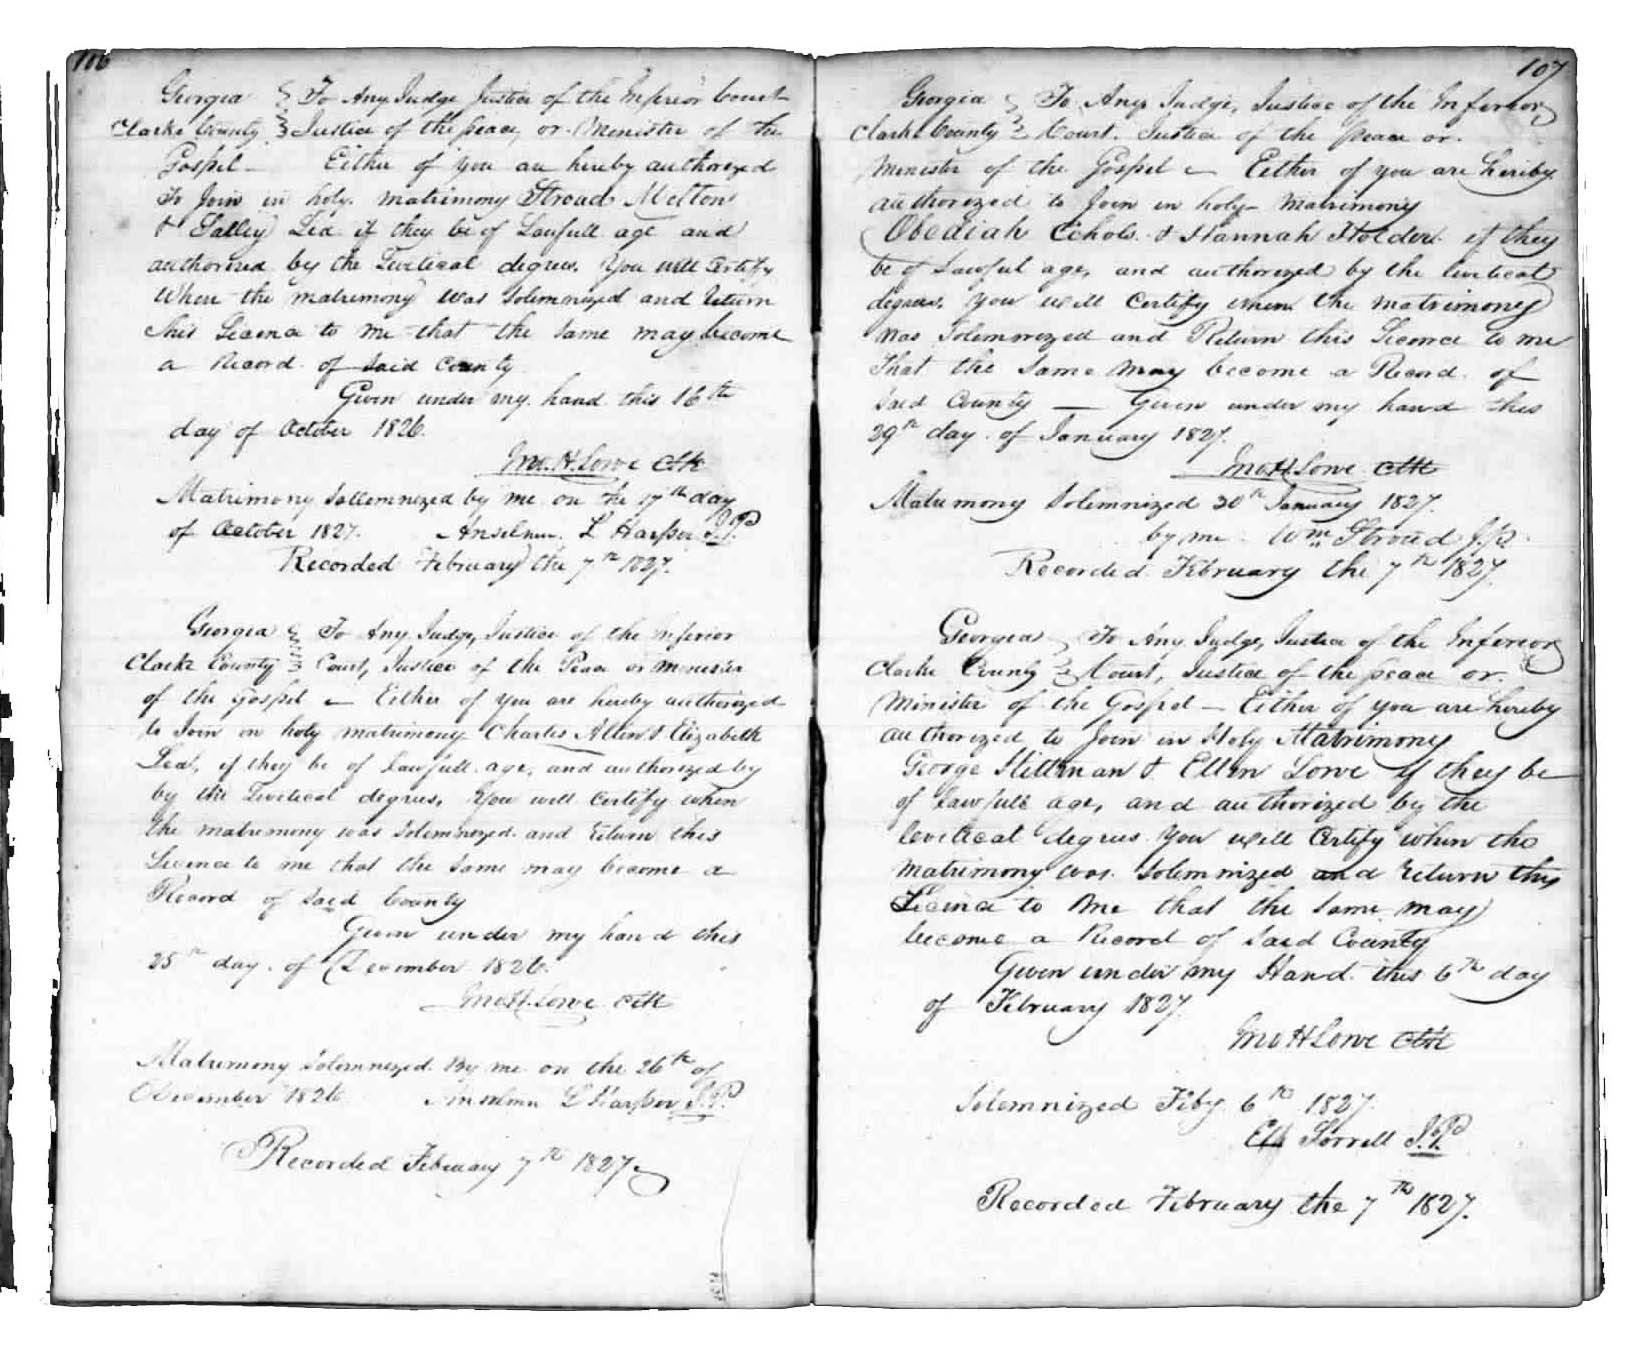 106
Georgia } To Any Judge Justice of the Inferior Court
Clarke County } Justice of the peace, or Minister of the
Gospel — Either of you are hereby authorized
To Join in holy matrimony Stroud Melton
& Salley Lea if they be of Lawfull age and
authorized by the Levitical degrees. You will Certify
When the matrimony was Solemnized and Return
this Licence to me that the same may become
a Record of said County
Given under my hand this 16th
day of October 1826.
Jno. H. Lowe Clk
Matrimony Sollemnized by me on the 17th day
of October 1827. Anselmn L Harper J.P.
Recorded February the 7th 1827.
Georgia } To Any Judge, Justice of the Inferior
Clarke County } Court, Justice of the Peace or Minister
of the Gospel — Either of you are hereby authorized
to Join in holy matrimony Charles Allen & Elizabeth
Lea, if they be of Lawfull age, and authorized by
by the Levitical degrees, You will Certify when
the matrimony was Solemnized and return this
Licence to me that the same may become a
Record of Said County
Given under my hand this
25th day of December 1826.
Jno H. Lowe Clk
Matrimony Solemnized By me on the 26th of
December 1826 Anselmn L Harper J.P.
Recorded February 7th 1827.
107
Georgia } To Any Judge, Justice of the Inferior
Clarke County } Court, Justice of the peace or
Minister of the Gospel — Either of you are hereby
authorized to Join in holy Matrimony
Obediah Echols & Hannah Holder if they
be of Lawful age, and authorized by the Levitical
degrees, you will Certify when the matrimony
was Solemnized and Return this Licence to me
That the same may become a Record of
Said County — Given under my hand this
29th day of January 1827.
Jno H. Lowe Clk
Matrimony Solemnized 30th January 1827.
by me Wm Stroud J.P.
Recorded February the 7th 1827.
Georgia } To Any Judge, Justice of the Inferior
Clarke County } Court, Justice of the peace or
Minister of the Gospel — Either of you are hereby
authorized to Join in Holy Matrimony
George Stillman & Ellen Lowe if they be
of Lawfull age, and authorized by the
Levitical degrees You will Certify when the
Matrimony was Solemnized and return this
Licence to Me that the same may
become a Record of Said County
Given under my Hand this 6th day
of February 1827.
Jno H Lowe Clk
Solemnized Feby 6th 1827.
Sorrell J.P.
Recorded February the 7th 1827.